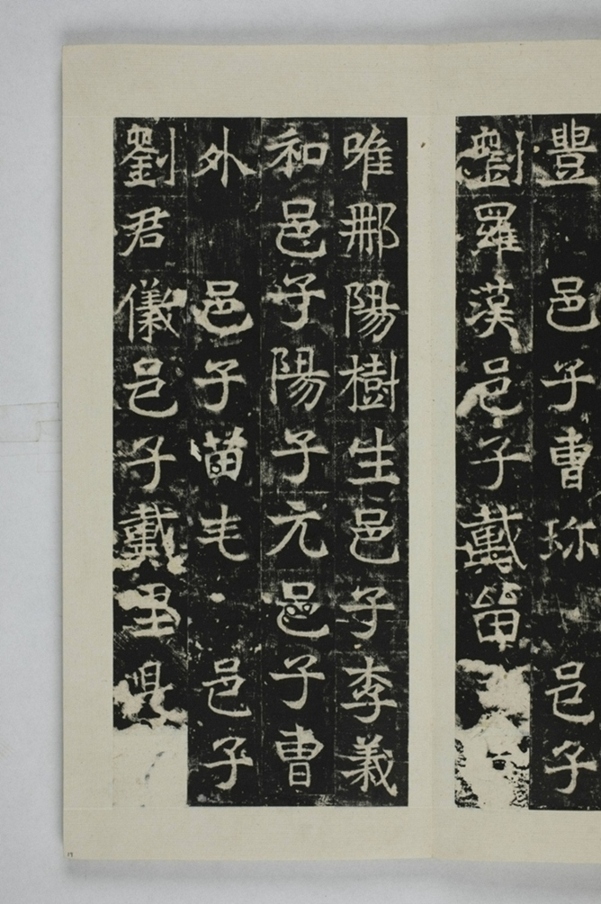 豊 邑子曹珎 邑子
劉羅漢邑子戴留
唯那陽樹生邑子李義
和邑子陽子元邑子曹
外 邑子苗毛 邑子
劉君儀邑子戴